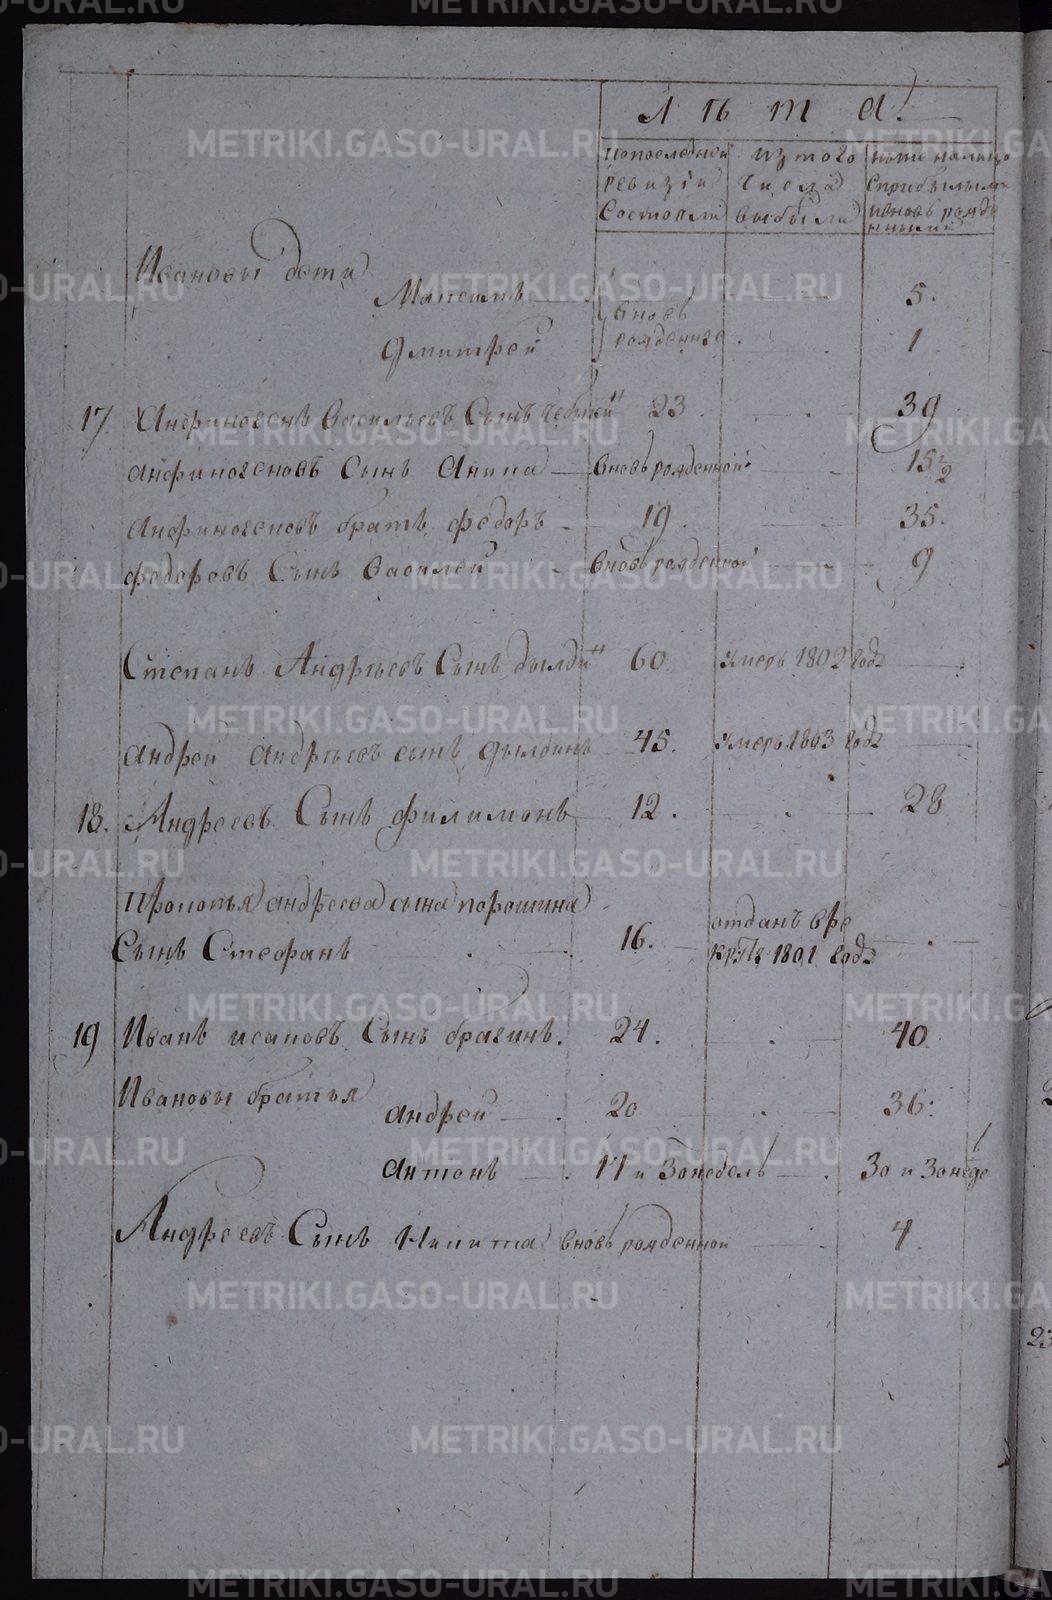 Лѣта
попоследней изтого ныне налицо
ревизіи числа сприбылыми
состояли выбыли ивновь рожде
нными
Ивановы дети
Максимъ 5.
вновь
рожденные
Дмитрей 1
17. Анфиногенъ Васильевъ Сынъ 23. 39
анфиногеновъ сынъ Акила вновь рожденной 15½
анфиногеновъ братъ федоръ 19. 35.
федоровъ Сынъ Василей вновь рожденной 9
Степанъ Андрѣевъ Сынъ дылди" 60. умеръ 1802 годꙋ
андрей андрѣевъ сынъ дылдинъ 45. умеръ 1803 годꙋ
18. Андреевъ Сынъ филимонъ 12. 28
Прокопья андреева сына порошина
Сынъ Стефанъ 16. отданъ вре
крꙋты 1801 годꙋ
19 Иванъ исаковъ Сынъ брагинъ. 24. 40.
Ивановы братья
андрей 20 36.
антонъ 14 и 30 недель 30 и 30 неде
Андреевъ Сынъ Никита вновь рожденной 4
METRIKI.GASO-URAL.RU